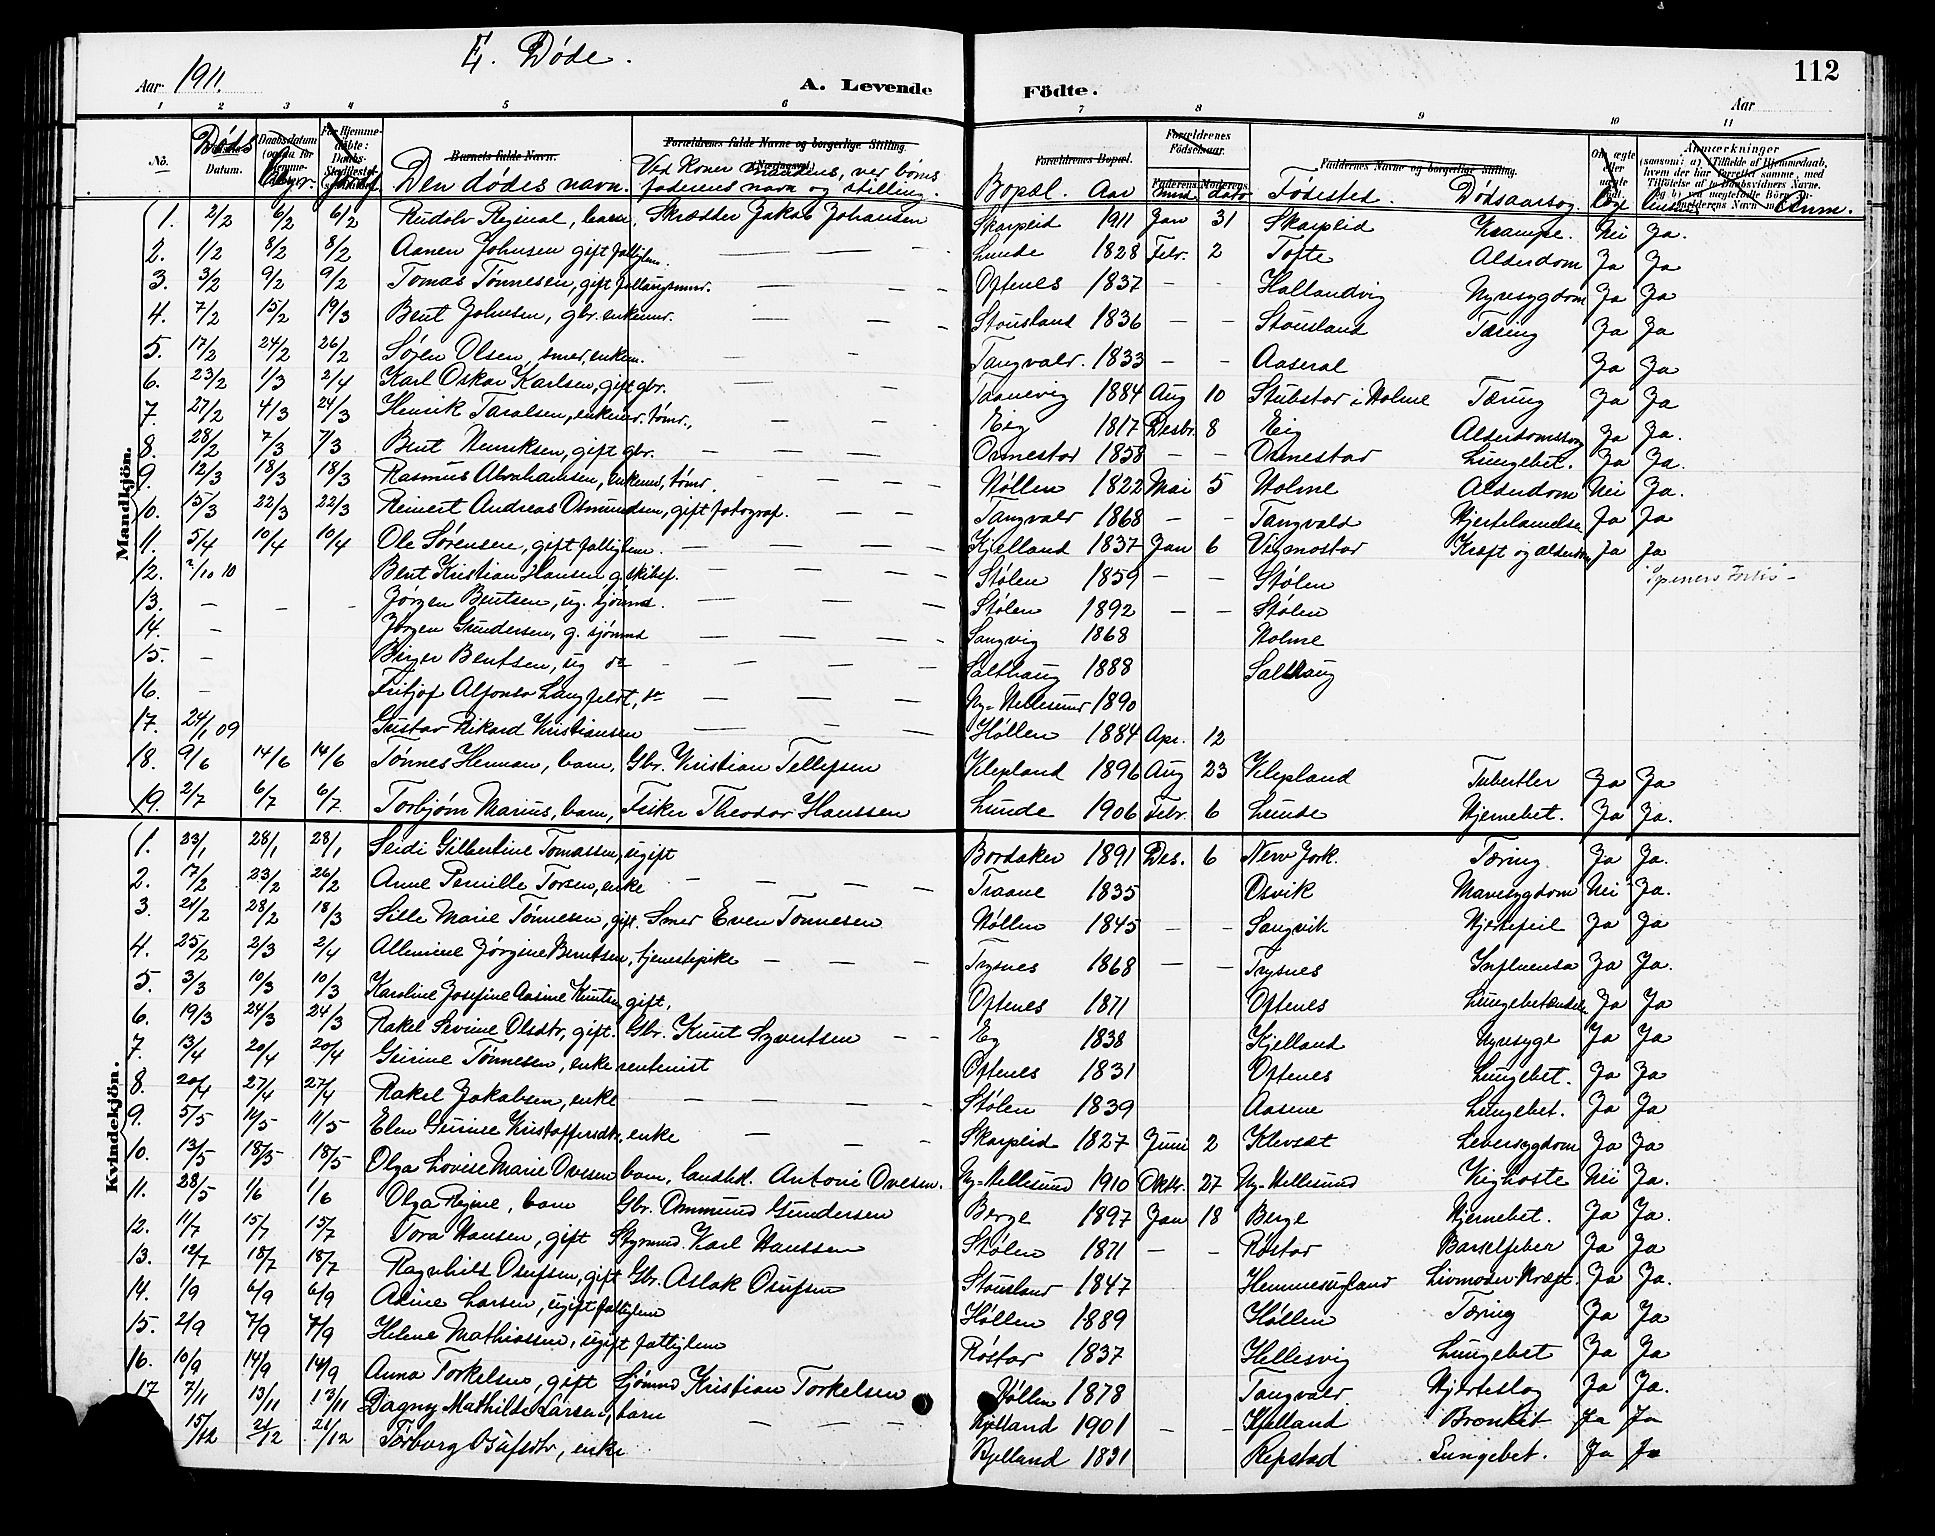 E. Døde.
112
Aar 1911.
A. Levende
Födte.
Aar
1 2 3 4 5 6 7 8 9 10 11
No. Døds Datum. Den dødes navn. Ved koner mandens, ved børns faderens navn og stilling. Bopæl. Aar Fødested. Dødsaarsag. Anm.
Mandkjön.
1. 2/2 6/2 6/2 Rudolv Reginal, barn, Skrædder Jakob Johansen Skarpleid 1911 Jan 31 Skarpleid Krampe. Nei Ja.
2. 1/2 8/2 8/2 Aanen Johnsen gift fattiglem. — — — Lunde 1828 Febr. 2 Tofte Alderdom Ja Ja
3. 3/2 9/2 9/2 Tomas Tønnesen, gift — — — Oftenes 1837 — — Hallandvig Nyresygdom Ja Ja
4. 7/2 15/2 19/3 Bent Johnsen, gbr. enkemd. — — — Stousland 1836 — — Stousland Tæring Ja Ja
5. 17/2 24/2 26/2 Søren Olsen, smed, enkem. — — — Tangvald. 1833 — — Aaseral Ja Ja
6. 23/2 1/3 2/4 Karl Oskar Karlsen, gift gbr. — — Taanevig 1884 Aug 10 Stubstad i Holme Tæring Ja Ja
7. 27/2 4/3 24/3 Henrik Taralsen, enkemd. tømd., — — — Eig 1817 Desbr. 8 Eig Ja Ja.
8. 28/2 7/3 7/3 Bent Henriksen, gift gbr. — — — — Ormestad 1858 — — Ormestad Lungebet. Ja Ja.
9. 12/3 18/3 18/3 Rasmus Abrahamsen, enkemd, tømd. — — — Høllen 1822 Mai 5 Holme Alderdom Nei Ja.
10. 15/3 22/3 22/3 Reinert Andreas Osmundsen, gift fotograf. — — Tangvald 1868 — — Tangvald Hjertelamelse Ja Ja
11. 5/4 10/4 10/4 Ole Sørensen, gift fattiglem. — — — — Kjelland 1837 Jan 6 Vigmostad Kræft og alderdom Ja Ja
12. 2/10 10 Bent Kristian Hansen g. skibsf. — — — Stølen 1859 — — Stølen
13. — — — Jørgen Bentsen, ug. sjømnd. — — — — Stølen 1892 — — Stølen
14. — Jørgen Gundersen, g. sjømnd — — — — Langvig 1868 Holme
15. — Birger Bentsen, ug do — — — — Salthaug 1888 Salthaug
16. — Fritjof Alfonso Langfeldt, do — — — Ny-Hellesund 1890
17. 24/1 09 Gustav Rikard Kristiansen — — — Høllen 1884 Apr. 12
18. 9/6 14/6 14/6 Tønnes Herman, barn, Gbr. Kristian Tellefsen Klepland 1896 Aug 23 Klepland Tuberkler Ja Ja
19. 2/7 6/7 6/7 Torbjørn Marius, barn, Fisker Theodor Hanssen Lunde 1906 Febr. 6 Lunde Hjernebet. Ja Ja.
Kvindekjön.
1. 23/1 28/1 28/1 Seidi Gilbertine Tomassen, ugift Bordaker 1891 Des. 6 New York. Tæring Ja Ja.
2. 17/2 23/2 26/2 Anne Pernille Torsen, enke — — — — Traane 1835 Osvik Mavesygdom Nei Ja.
3. 21/2 28/2 18/3 Sille Marie Tønnesen, gift. Smed Even Tønnesen Høllen 1845 — — Langvik Hjertefeil Ja Ja
4. 25/2 2/3 2/4 Allemine Jørgine Berntsen, tjenestepike — — — Trysnes 1868 — — Trysnes Influensa Ja Ja.
5. 3/3 10/3 10/3 Karoline Josefine Aasine Knutsen, gift, Oftenes 1871 Oftenes Lungebetændelse Ja Ja
6. 19/3 24/3 24/3 Rakel Sevrine Olsdtr, gift. Gbr. Knut Syvertsen — — Eg 1838 Kjelland Nyresyge Ja Ja
7. 13/4 20/4 20/4 Gurine Tønnesen, enke rentenist Oftenes 1831 Oftenes Lungebet. Ja Ja
8. 20/4 27/4 27/4 Rakel Jakobsen, enke — — — — Stølen 1839 Aasne Lungebet. Ja Ja
9. 5/5 11/5 11/5 Elen Gurine Kristoffersdtr, enke — — — Skarpleid 1827 Juni 2 Klevset Leversygdom Ja Ja
10. 13/5 18/5 18/5 Olga Lovise Marie Ovesen barn, landhd. Antoni Ovesen. Ny-Hellesund 1910 Oktbr. 27 Ny-Hellesund Kighoste Nei Ja.
11. 28/5 1/6 1/6 Olga Regine, barn Gbr. Ommund Gundersen Berge 1897 Jan 18 Berge Hjernebet. Ja Ja.
12. 11/7 15/7 15/7 Tora Hansen, gift Styrmd. Karl Hanssen Stølen 1871 — — Røstad Barselfeber Ja Ja
13. 12/7 18/7 18/7 Ragnhild Osufsen, gift Gbr. Aslak Osufsen Stousland 1847 Livmoder Kræft. Ja Ja.
14. 1/9 6/9 6/9 Adine Larsen, ugift fattiglem Høllen 1889 Høllen Tæring Ja Ja
15. 2/9 7/9 7/9 Helene Mathiassen, ugift fattiglem Røstad 1837 Hellesvig Lungebet Ja Ja
16. 10/9 14/9 14/9 Anna Torkelsen, gift Sjømnd Kristian Torkelsen Høllen 1878 Tangvald Hjerteslag Ja Ja.
17 7/11 13/11 13/11 Dagny Mathilde Larsen, barn — — — Kjelland 1901 — — Kjelland Bronkit Ja Ja
15/12 21/12 21/12 Torborg Osufsdtr, enke Kjelland 1831 Repstad Lungebet. Ja Ja